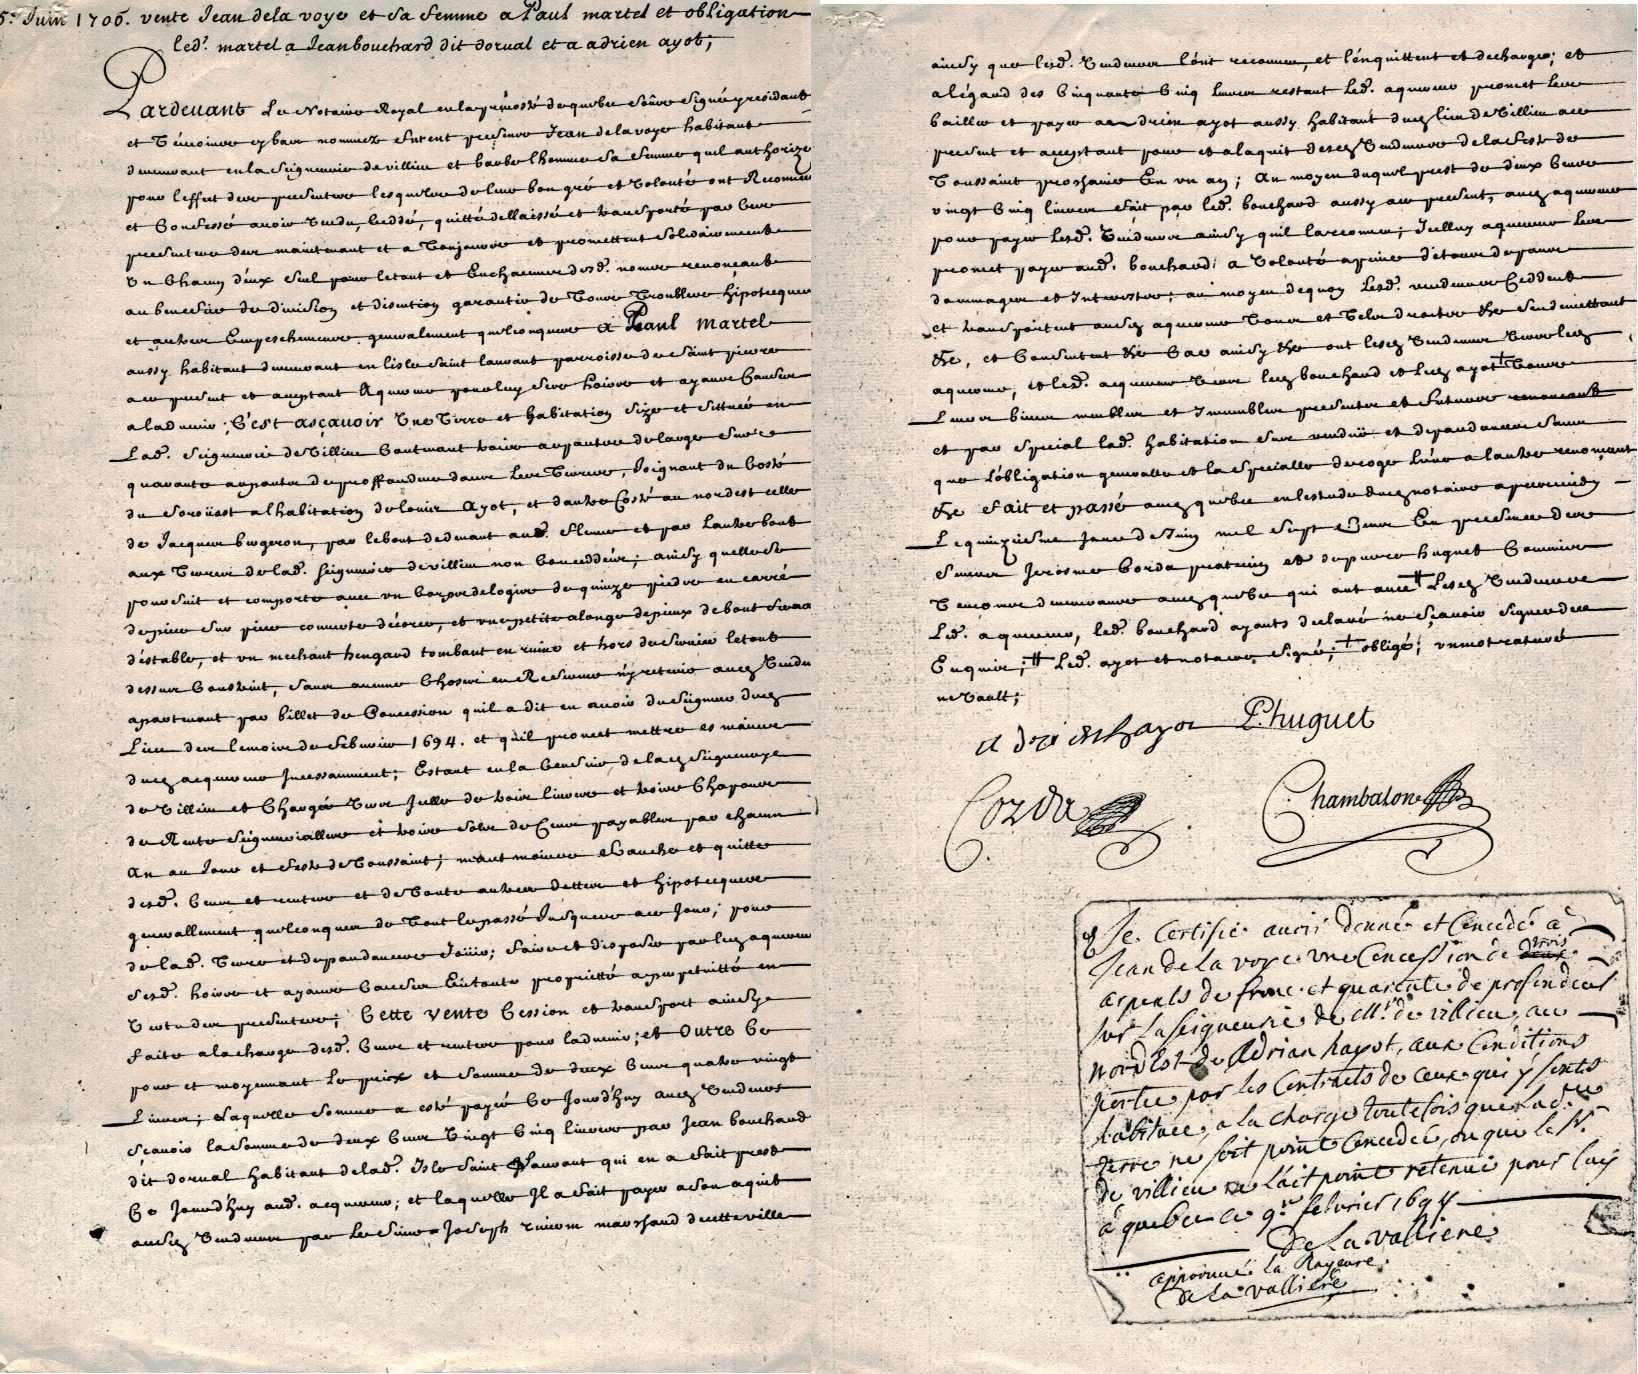 5e. Juin 1706. vente Jean dela voye et sa femme a Paul martel et obligation
led. martel a Jean bouchard dit dorval et a adrien ayot;
Pardevant Le Notaire Royal en la prevosté de quebec soûsigné y residant
et Témoins cy bas nommez furent presens Jean de la voye habitant
demeurant en la Seigneurie de villieu et barbe lhomme Sa femme quil authorize
pour leffet des presentes lesquels de leur bon gré et Volonté ont Reconnu
et Confessé avoir Vendu, Ceddé, quitté dellaissé et transporté par Ces
presentes des maintenant et a Toujours et promettent Solidairement
Un Chacun d'eux seul pour le tout et Enchacuns desd. noms renonçant
au benefice de division et discution garantir de Tous Troubles hipotecques
et autres Empeschemens generalement quelconques a Paul martel
aussy habitant demeurant en lisle Saint laurant parroisse de Saint pierre
a ce present et acceptant Aquereur pour luy Ses hoirs et ayans Cause
a ladvenir; C'est asçavoir Une Terre et habitation Size et Scittuée en
Lad. Seigneurie de Villieu Contenant trois arpents de large sur
quarante arpents de proffondeur dans les Terres, Joignant du Costé
du Soroüest a l habitation de louis Ayot, et dautre Costé au nordest celle
de Jacques bergeron, par le bout de devant au fleuve et par Lautre bout
aux Terres de lad. Seigneurie de villieu non Conceddées; ainsy quelle se
poursuit et comporte avec un Corps de logis de quinze pieds en carré
de piece sur piece couverte d'écorce, et une petite alonge de pieux debout servant
d'estable, et un mechant hengard tombant en ruine et hors de service le tout
dessus Construit, Sans aucune Chose en Reserver ny retenir ausd. Vendeurs
apartenant par billet de Concession quil a dit en avoir du Seigneur dud.
Lieu des le mois de Febvrier 1694. et quil promet mettre es mains
dud. acquereur Incessamment; Estant en la Censive de lad. Seigneurie
de Villieu et Chargée Vers Icelle de trois livres et trois Chapons
de Rente Seigneurialle et trois sols de Cens payables par chacun
An au Jour et feste de Toussaint; neantmoins franche et quitte
desd. Cens et rentes et de Toutes autres dettes et hipotecques
generallement quelconques de Tout le passé Jusques a ce Jour; pour
de lad. Terre et dependances Jouir, faire et disposer par led. aquereur
sesd. hoirs et ayans Cause En toute proprietté a perpetuitté en
Vertu des presentes; Cette vente Cession et transport ainsy
faite a la charge desd. Cens et rentes pour ladvenir; et Outre Ce
pour et moyennant Le prix et Somme de deux Cens quatre vingt
Livres; Laquelle Somme a esté payée Ce Jourd'huy ausd. Vendeurs
Sçavoir la Somme de deux Cens Vingt Cinq livres par Jean bouchard
dit dorval habitant de lad. Isle Saint Laurant qui en a fait prest
Ce Jourd'huy aud. acquereur; et laquelle Il a fait payer a Son aquit
ausd. Vendeurs par Le Sieur Joseph riverin marchand de cette ville
ainsy que lesd. Vendeurs l'ont reconnu, et l'en quittent et decharge; et
a légard des Cinquante Cinq livres restant Led. aquereur promet Les
bailler et payer a adrien ayot aussy habitant dud. lieu de Villieu a ce
present et acceptant pour et a laquit desd. Vendeurs de la feste de
Toussaint prochaine En un an; Au moyen duquel prest de deux Cens
vingt Cinq livres fait par led. bouchard aussy a ce present, aud. aquereur
pour payer Lesd. Vendeurs ainsy quil la reconnu; Icelluy aquereur Les
promet payer aud. bouchard a Volonté a peine de tous depens
dommages et Interests; au moyen de quoy Lesd. vendeurs Ceddent
et transportent ausd. aquereur Tous et Tels droits &c Se demettant
&c, et Consentent &c Car ainsy &c ont lesd. Vendeurs Envers led.
aquereur, et led. aquereur Vers led. bouchard et led. ayot Tous
Leurs biens meubles et Immeubles presents et futurs renonçant
et par Special lad. habitation Sus vendüe et dependances Sans
que l'obligation generalle et la Specialle deroge L'une a lautre renonçant
&c fait et passé aud. quebec en lestude dud. notaire apres midy
Le quinziesme Jour de Juin mil Sept Cens Six En presence des
Sieurs Jerosme Corda praticien et de pierre huguet Commis
Temoins demeurans aud. quebec qui ont avec Lesd. Vendeurs
Led. aquereur, led. bouchard ayants declaré ne Sçavoir Signer de ce
Enquis; Led. ayot et notaire Signé; obligé; un mot raturé
ne vault;
a drien hayot P. huguet
Corda Chambalon
Je Certifie avoir donné et Concedé à
Jean de la voye une Concession de deux trois
arpents de front et quarente de profondeur
sur la Seigneurie de Mr. de villieu au
nordEst de Adrian hayot, aux Conditions
portée par les Contracts de ceux qui y sont
habitués, a la charge toutefois que Lad.
terre ne soit point Concedée, ou que le Sr.
de villieu ne lait point retenue pour luy
à quebec ce 9e. febvrier 1694
De La valliere
approuvé la Rayeure
de La valliere